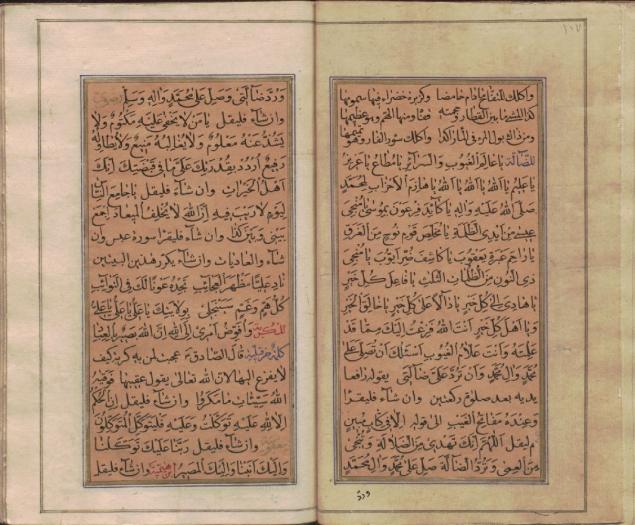 ۱۰۷
واكلك للتفاح الحامضا وكزبرة خضراء فيها سمومها
كذا المشي ما بين القطار وحجمة قفاء ومنها الهم وهو عظيمها
ومن ذاك بول المرء في الماء راكدا واكلك سؤر الفار وهو تميمها
للضالة يا عالم الغيوب والسرائر يا مطاع يا عزيز
يا عليم يا الله يا الله يا الله يا هازم الاحزاب لمحمد
صلى الله عليه واله يا كائد فرعون لموسى يا منجى
عيسى من ايدى الظلمة يا مخلص قوم نوح من الغرق
يا راحم عبرة يعقوب يا كاشف ضر ايوب يا منجى
ذى النون من الظلمات الثلث يا فاعل كل خير
يا هادى الى كل خير يا دالا على كل خير يا خالق الخير
ويا اهل كل خير انت الله فزعت اليك مما قد
علمته وانت علام الغيوب اسئلك ان تصلى على
محمد وال محمد وان ترد على ضالتى يقوله رافعا
يديه بعد صلوة ركعتين وان شاء فليقرا
وعنده مفاتح الغيب الى قوله الا فى كتاب مبين
ثم ليقل اللهم انك تهدى من الضلالة وتنجى
من العمى وترد الضالة صل على محمد وال محمد
ورد
ورد ضالتى وصل على محمد واله وسلم
وان شاء فليقل يا من لا يخفى عليه مكتوم ولا
يشذ عنه معلوم ولا يغالبه منيع ولا يطاوله
رفيع اردد بقدرتك على ما فى قبضتك انك
اهل الخيرات وان شاء فليقل يا جامع الناس
ليوم لا ريب فيه ان الله لا يخلف الميعاد اجمع
بينى وبين كذا وان شاء فليقرا سورة عبس وان
شاء والعاديات وان شاء يكرر هذين البيتين
ناد عليا مظهر العجائب تجده عونا لك فى النوائب
كل هم وغم سينجلى بولايتك يا على يا على يا على
وافوض امرى الى الله ان الله بصير بالعباد
قال الصادق عجبت لمن به كربة كيف
لا يفزع الى الله تعالى يقول عقيبها فوقيه
الله سيئات ما مكروا وان شاء فليقل ان الحكم
الا لله عليه توكلت وعليه فليتوكل المتوكلون
وان شاء فليقل ربنا عليك توكلنا
واليك انبنا واليك المصير وان شاء فليقل